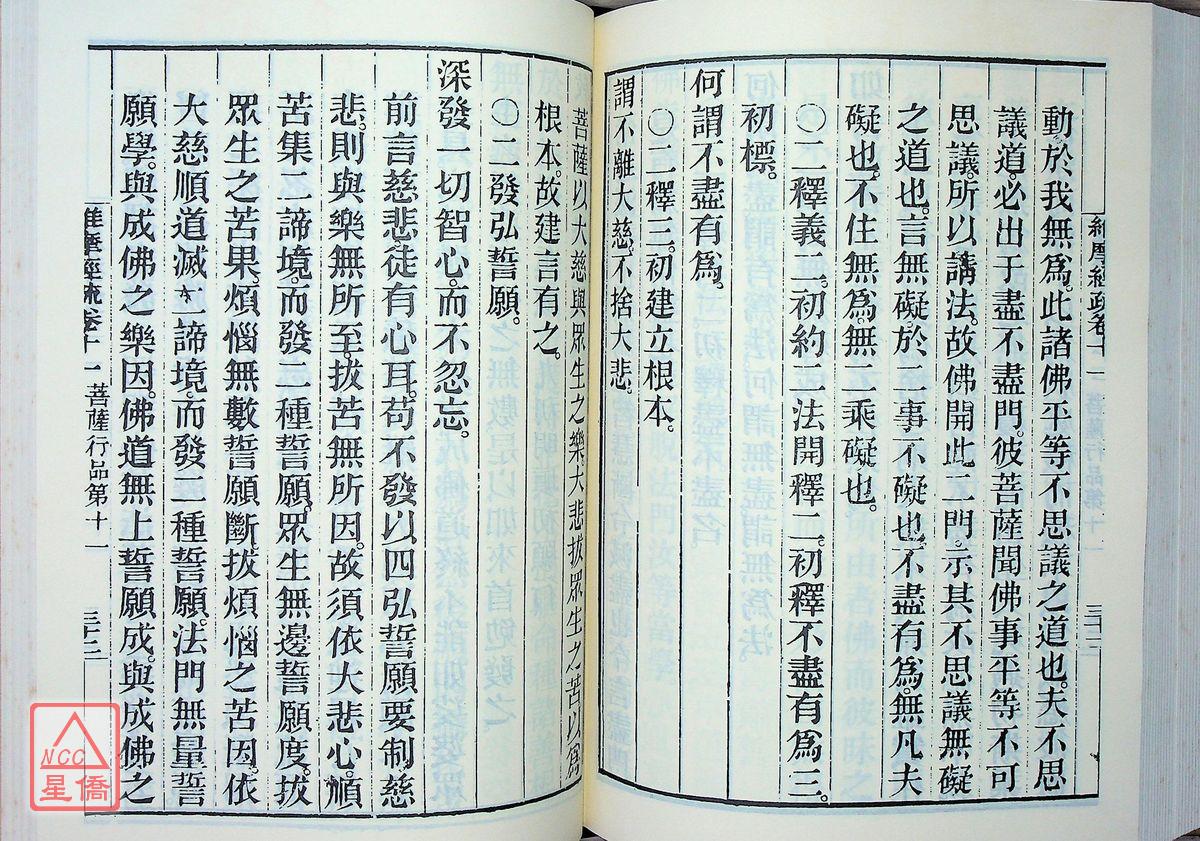 維摩經疏卷十一 菩薩行品第十一 三十三
動於我無為。此諸佛平等不思議之道也。夫不思
議道。必出于盡不盡門。彼菩薩聞佛事平等不可
思議。所以請法。故佛開此二門。示其不思議無礙
之道也。言無礙於二事不礙也。不盡有為。無凡夫
礙也。不住無為。無二乘礙也。
○二釋義二。初約二法開釋二。初釋不盡有為三。
初標。
何謂不盡有為。
○二釋三。初建立根本。
謂不離大慈。不捨大悲。
菩薩以大慈與眾生之樂。大悲拔眾生之苦。以為
根本。故建言有之。
○二發弘誓願。
深發一切智心。而不忽忘。
前言慈悲。徒有心耳。苟不發以四弘誓願要制慈
悲。則與樂無所至。拔苦無所因。故須依大悲心。順
苦集二諦境。而發二種誓願。眾生無邊誓願度。拔
眾生之苦果。煩惱無數誓願斷。拔煩惱之苦因。依
大慈順道滅二諦境。而發二種誓願。法門無量誓
願學。與成佛之樂因。佛道無上誓願成。與成佛之
維摩經疏卷十一 菩薩行品第十一 三十三
NCC
星僑